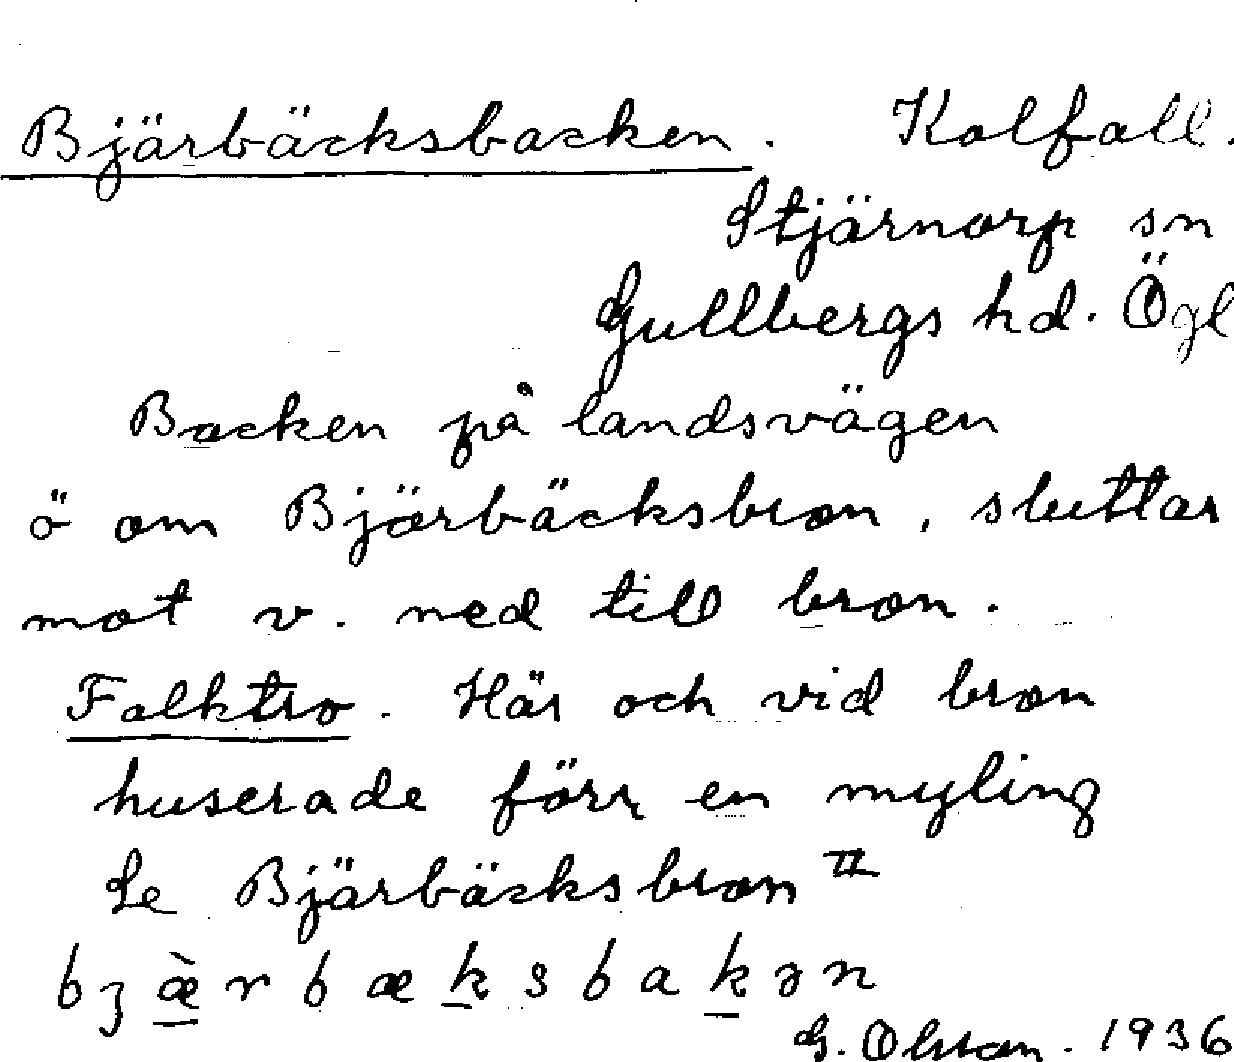 Bjärbäcksbacken. Kolfall.
Stjärnorp sn
Gullbergs hd. Ögl
Backen på landsvägen
ö om Bjärbäcksbron, sluttar
mot v. ned till bron.
Folktro. Här och vid bron
huserade förr en myling
Se Bjärbäcksbron II
bjæ̀rbæksbakən
G. Olsson. 1936